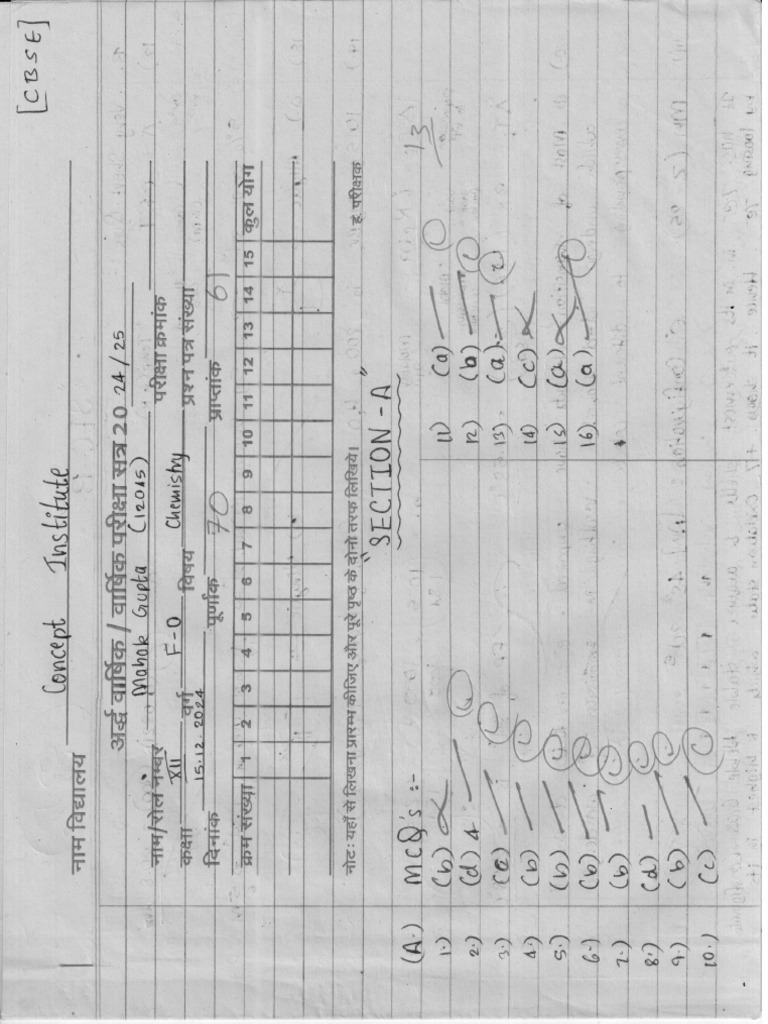 [CBSE]
नाम विद्यालय Concept Institute
अर्द्ध वार्षिक / वार्षिक परीक्षा सत्र 20 24/25
नाम/रोल नम्बर Mahak Gupta (12015) परीक्षा क्रमांक
कक्षा XII वर्ग F-O विषय Chemistry प्रश्न पत्र संख्या
दिनांक 15.12.2024 पूर्णांक 70 प्राप्तांक 61
क्रम संख्या 1 2 3 4 5 6 7 8 9 10 11 12 13 14 15 कुल योग
नोट: यहाँ से लिखना प्रारम्भ कीजिए और पूरे पृष्ठ के दोनो तरफ लिखिये। ह. परीक्षक
"SECTION-A"
13
(A.) MCQ's :-
1.) (b)
2.) (d)
3.) (a)
4.) (b)
5.) (b)
6.) (b)
7.) (b)
8.) (d)
9.) (b)
10.) (c)
11) (a)
12) (b)
13) (a)
14) (c)
15) (a)
16) (a)